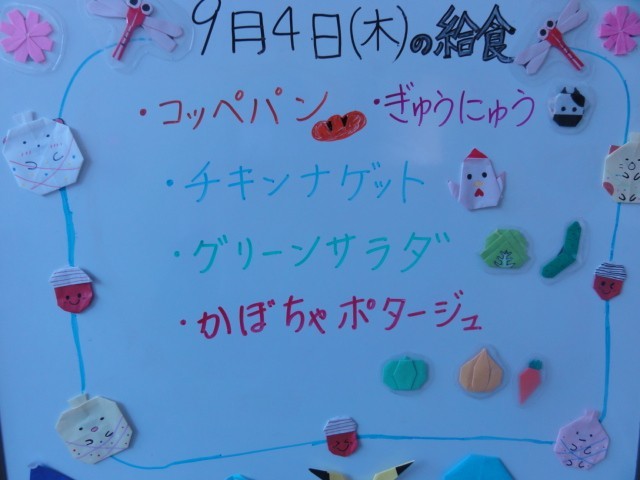 9月4日(木)の給食
・コッペパン ・ぎゅうにゅう
・チキンナゲット
・グリーンサラダ
・かぼちゃポタージュ